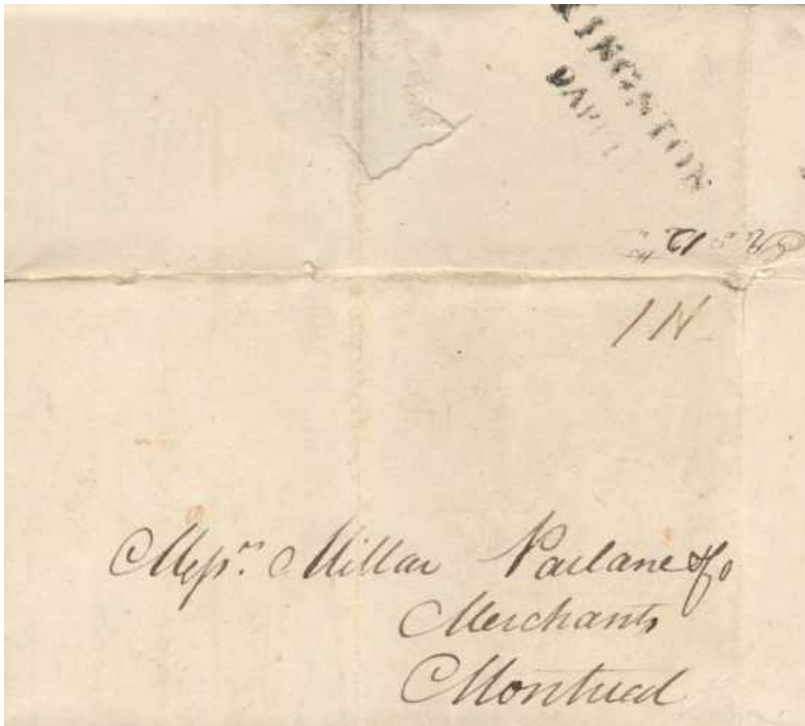 KINGSTON
12
1N
Messrs. Millar Parlane & Co
Merchants
Montreal